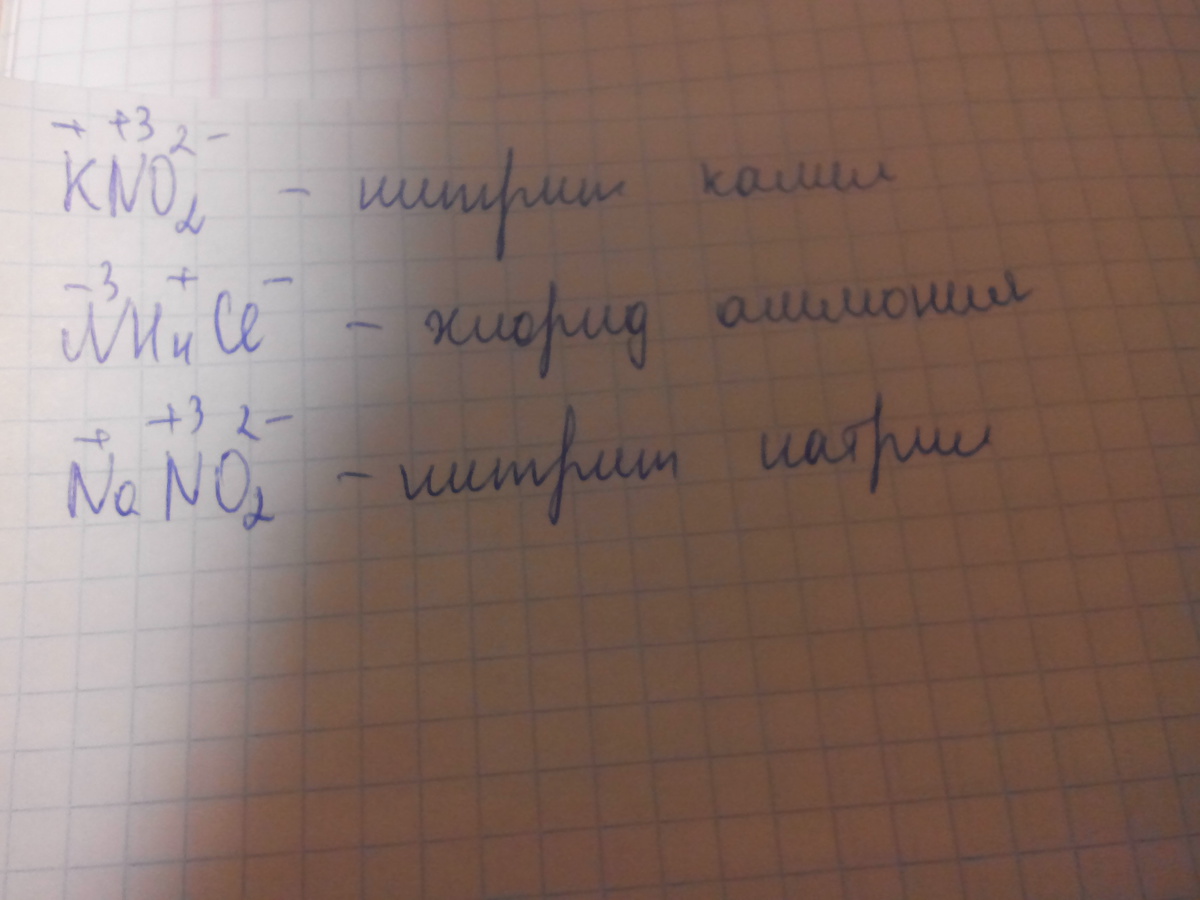 + +3 2-
KNO2 - нитрит калия
-3 + -
NH4Cl - хлорид аммония
+ +3 2-
NaNO2 - нитрит натрия